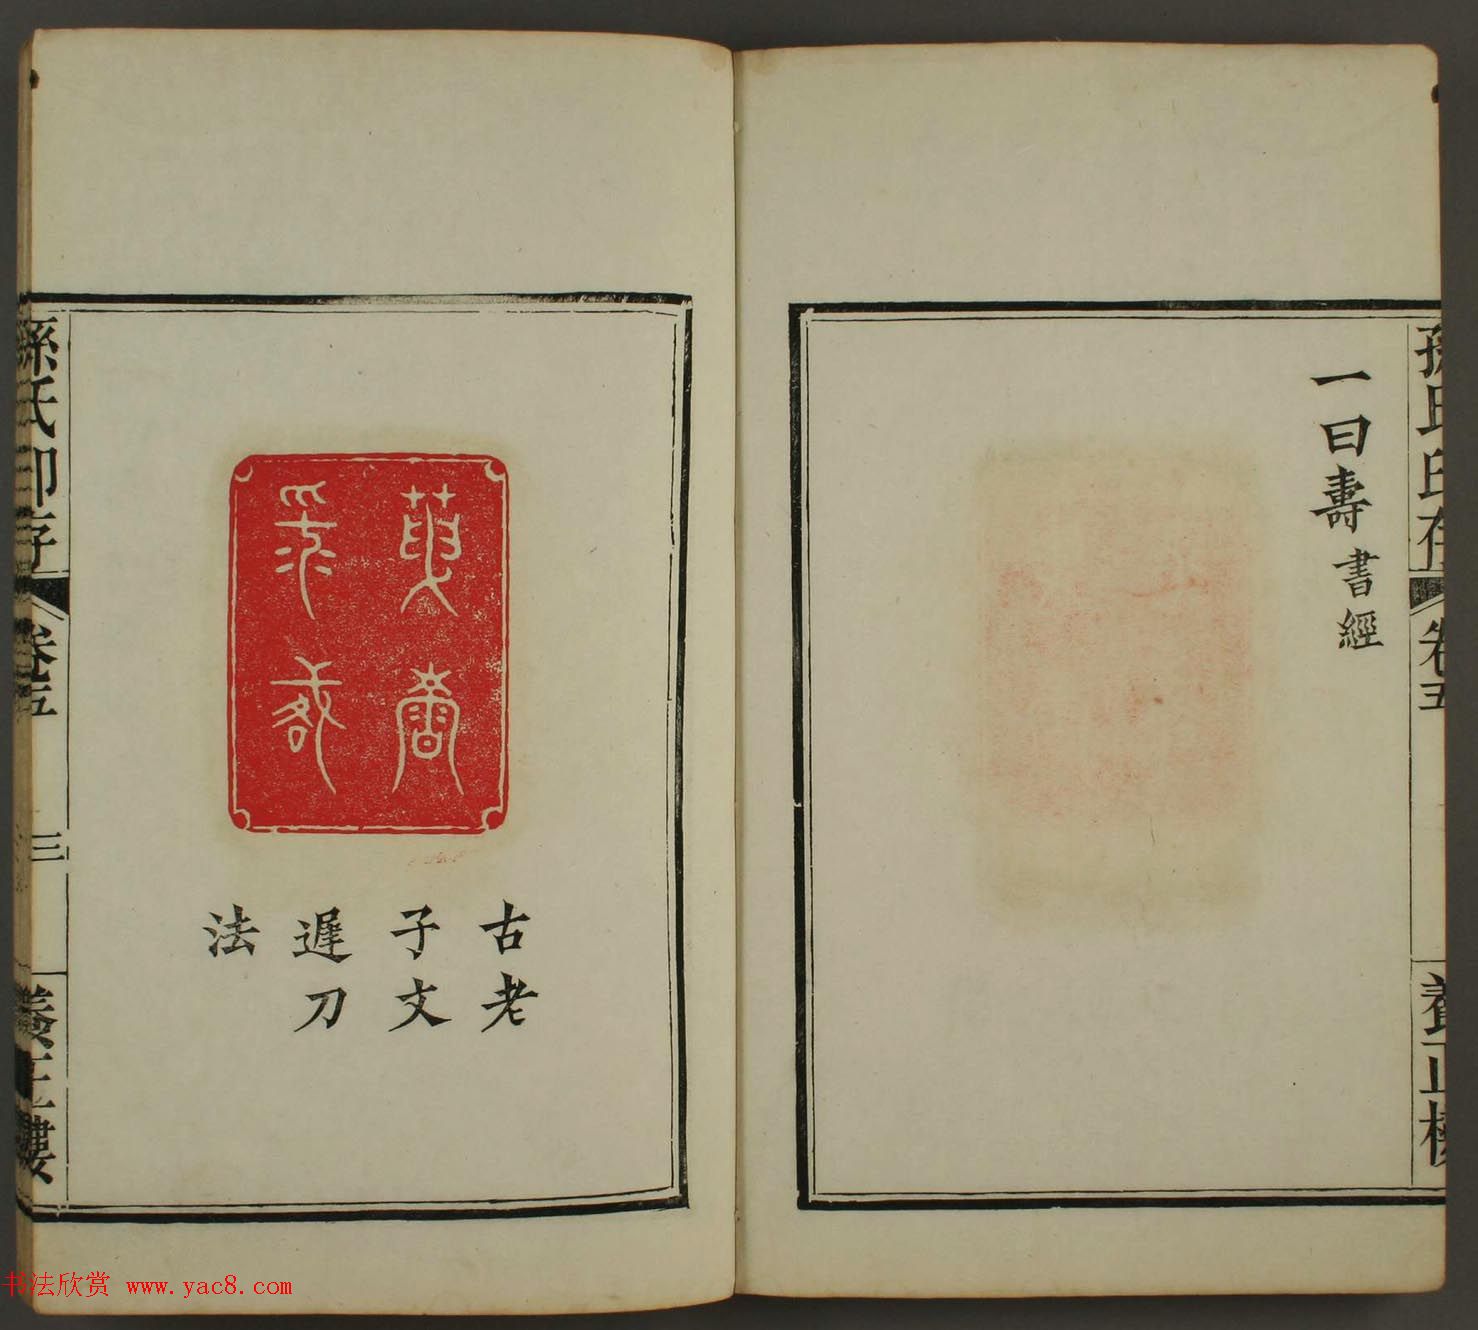 孫氏印存
卷五
養正樓
一曰壽書經
古老
子文
遲刀
法
孫氏印存
卷五
三
養正樓
书法欣赏 www.yac8.com